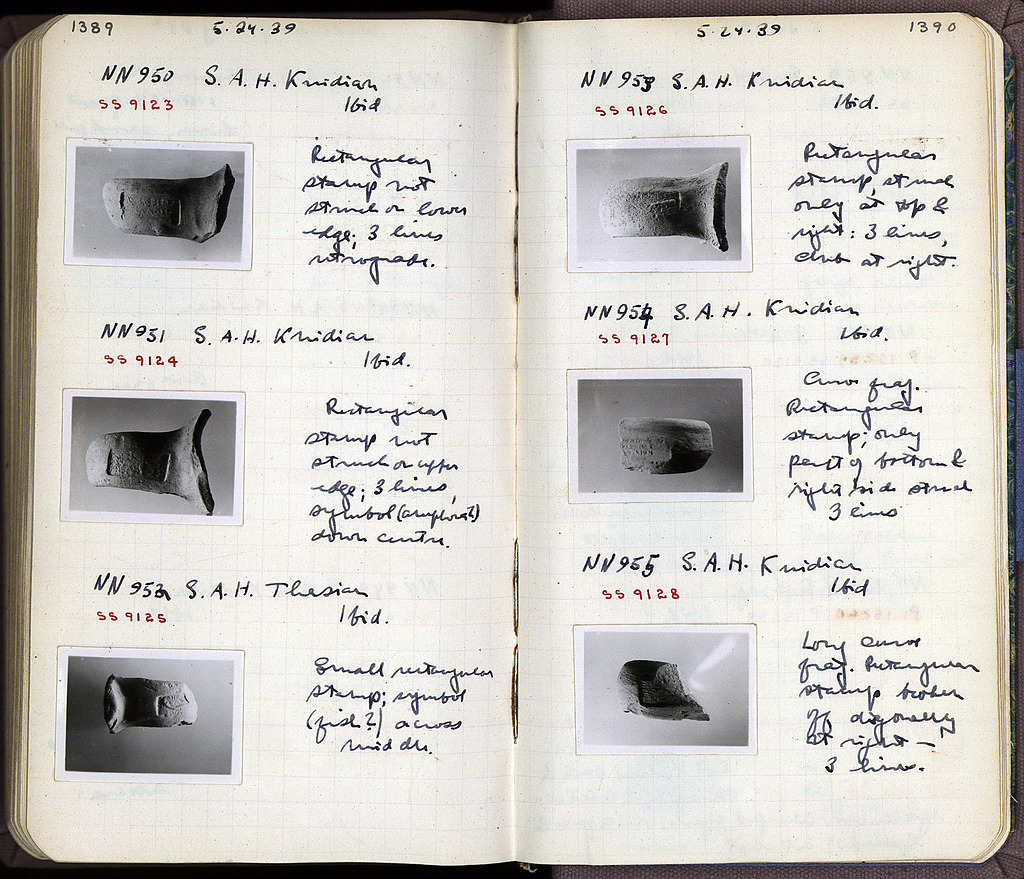 1389
5.24.39
NN 950 S. A. H. Knidian
Ibid
SS 9123
Rectangular
stamp not
struck on lower
edge; 3 lines
retrograde.
NN 951 S. A. H. Knidian
Ibid.
SS 9124
Rectangular
stamp not
struck on upper
edge; 3 lines,
symbol (amphora?)
down centre.
NN 952 S. A. H. Thasian
Ibid.
SS 9125
Small rectangular
stamp; symbol
(fish?) across
middle.
5.24.39
1390
NN 953 S. A. H. Knidian
Ibid.
SS 9126
Rectangular
stamp, struck
only at top &
right: 3 lines,
club at right.
NN 954 S. A. H. Knidian
Ibid.
SS 9127
Curve frag.
Rectangular
stamp; only
part of bottom &
right side struck
3 lines
NN 955 S. A. H. Knidian
Ibid
SS 9128
Long curve
frag. Rectangular
stamp broken
off diagonally
at right –
3 lines.